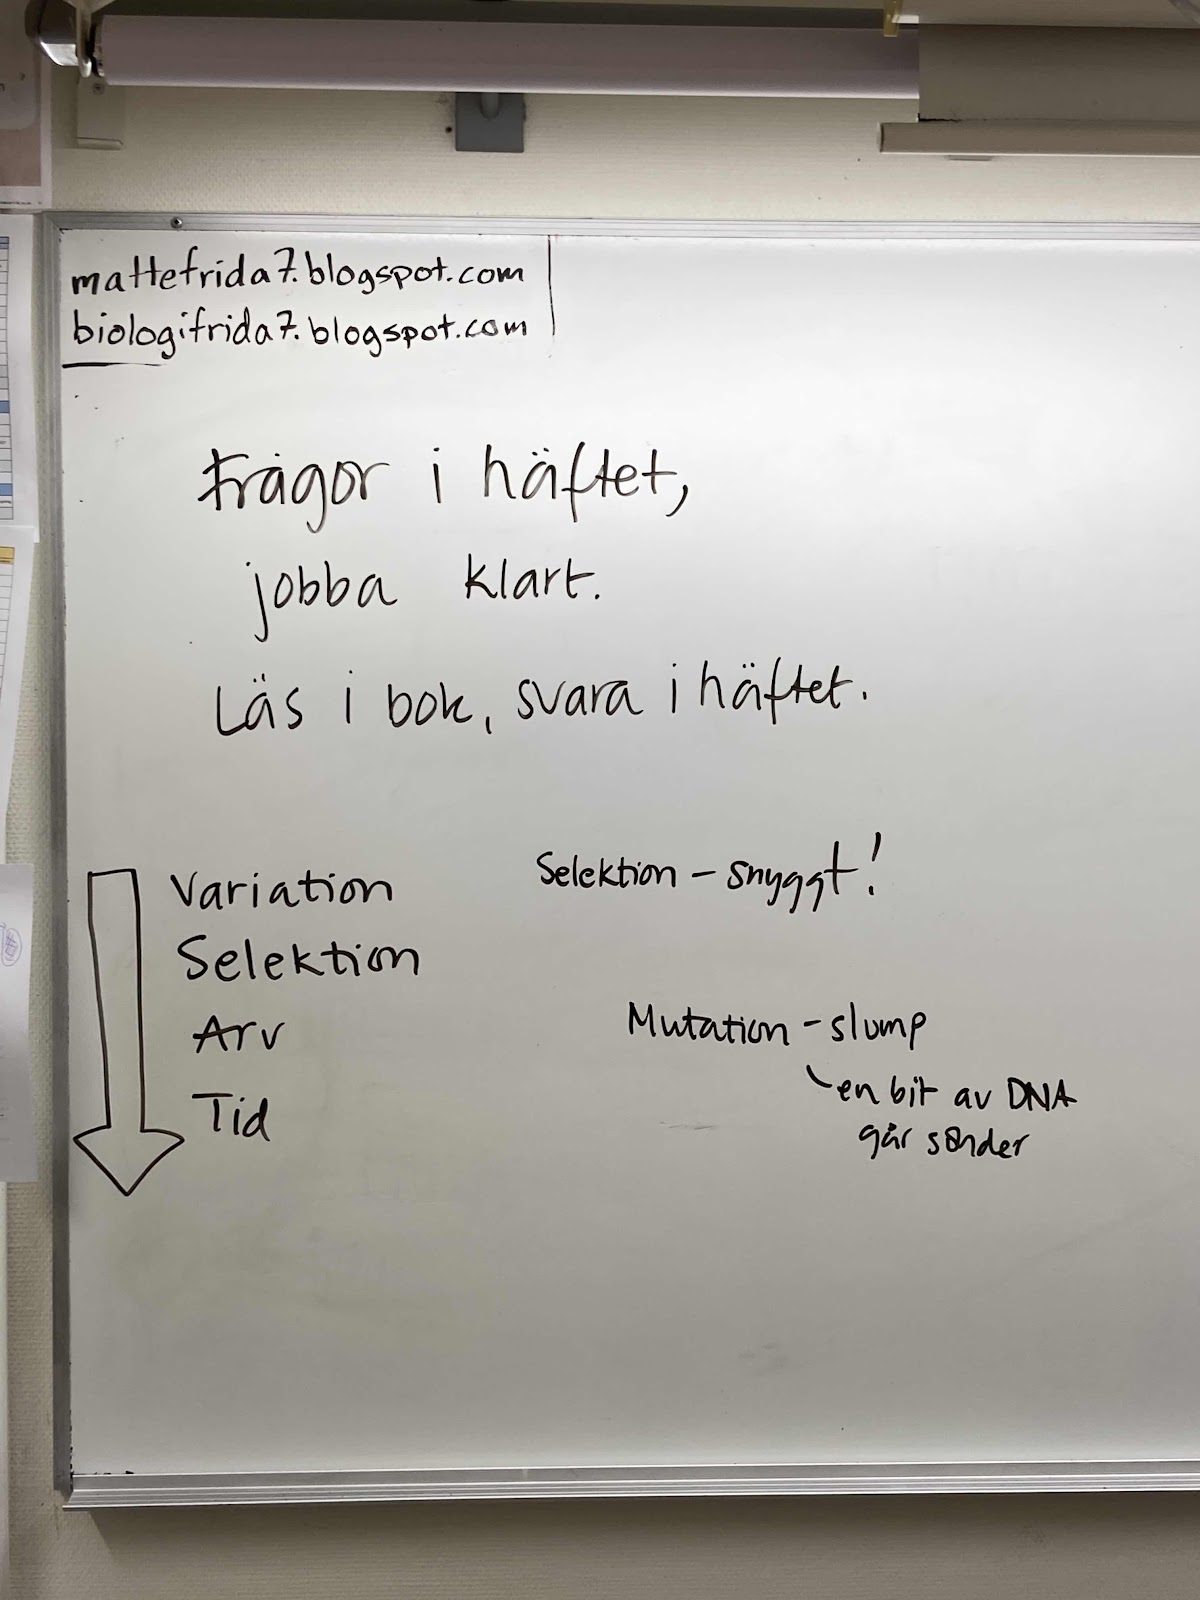 mattefrida7.blogspot.com
biologifrida7.blogspot.com
Frågor i häftet,
jobba klart.
Läs i bok, svara i häftet.
Variation
Selektion
Arv
Tid
Selektion - snyggt!
Mutation - slump
en bit av DNA
går sönder